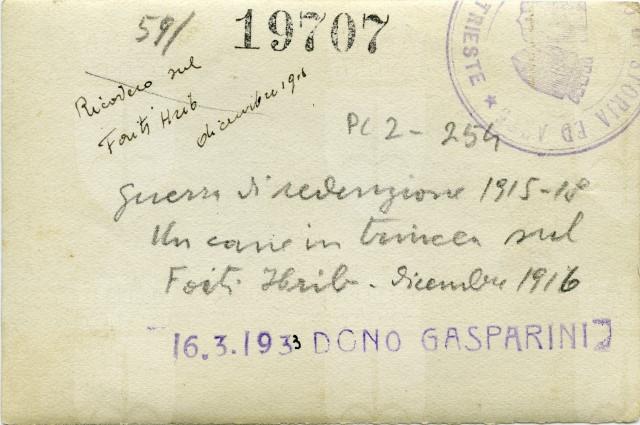 59/
19707
TRIESTE ★
STORIA ED
Ricovero sul
Faiti Hrib
dicembre 1916
PC 2 - 254
Guerra di redenzione 1915-18
Un cane in trincea sul
Faiti Hrib - dicembre 1916
16.3.1933 DONO GASPARINI